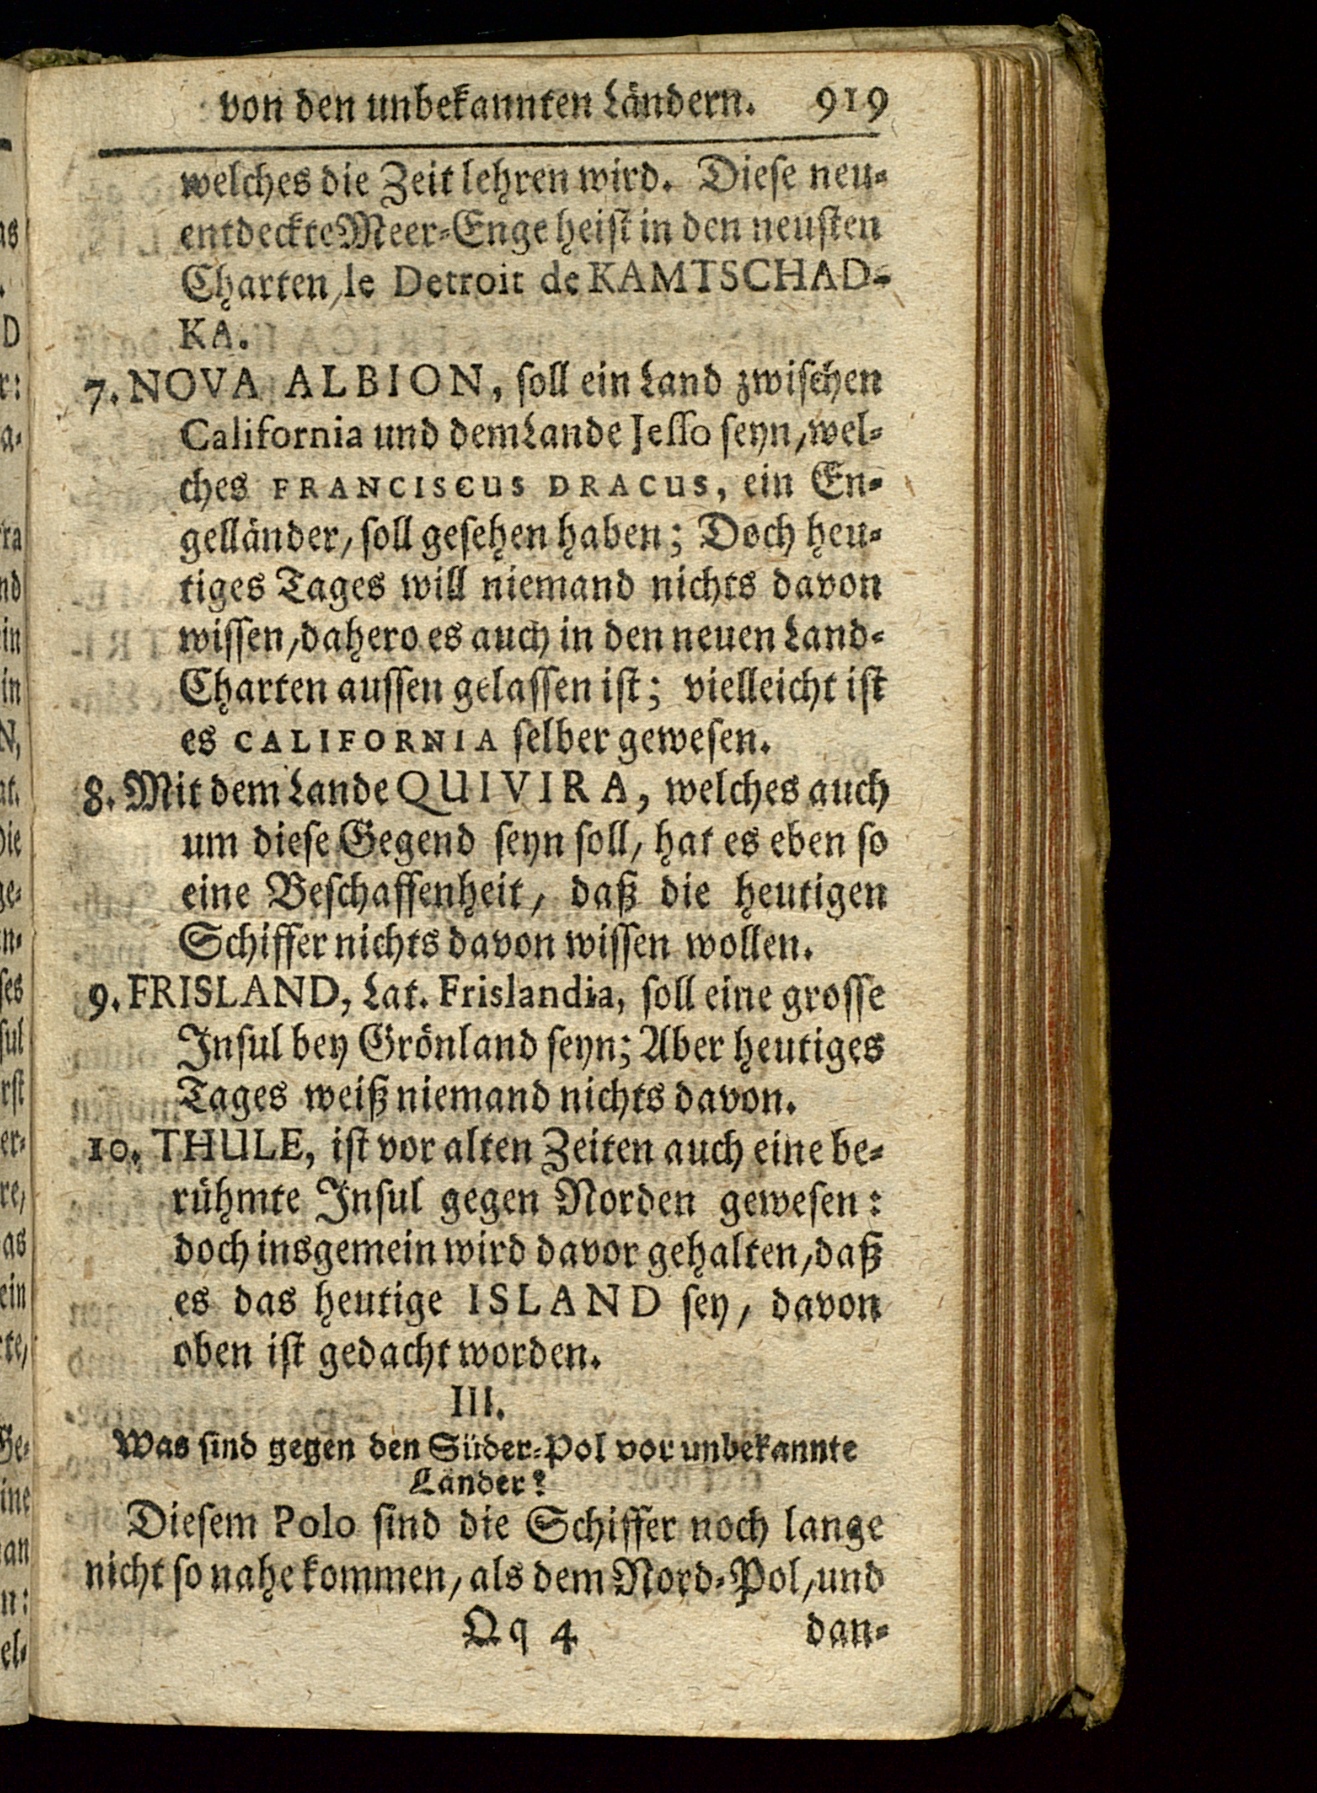 von den unbekannten Ländern. 919
welches die Zeit lehren wird. Diese neu-
entdeckte Meer-Enge heist in den neusten
Charten, le Detroit de KAMTSCHAD-
KA.
7. NOVA ALBION, soll ein Land zwischen
California und dem Lande Jesso seyn, wel-
ches FRANCISCUS DRACUS, ein En-
gelländer, soll gesehen haben; Doch heu-
tiges Tages will niemand nichts davon
wissen, dahero es auch in den neuen Land-
Charten aussen gelassen ist; vielleicht ist
es CALIFORNIA selber gewesen.
8. Mit dem Lande QUIVIRA, welches auch
um diese Gegend seyn soll, hat es eben so
eine Beschaffenheit, daß die heutigen
Schiffer nichts davon wissen wollen.
9. FRISLAND, Lat. Frislandia, soll eine grosse
Insul bey Grönland seyn; Aber heutiges
Tages weiß niemand nichts davon.
10. THULE, ist vor alten Zeiten auch eine be-
rühmte Insul gegen Norden gewesen:
doch insgemein wird davor gehalten, daß
es das heutige ISLAND sey, davon
oben ist gedacht worden.
III.
Was sind gegen den Süder-Pol vor unbekannte
Länder?
Diesem Polo sind die Schiffer noch lange
nicht so nahe kommen, als dem Nord-Pol, und
Qq 4 dan-